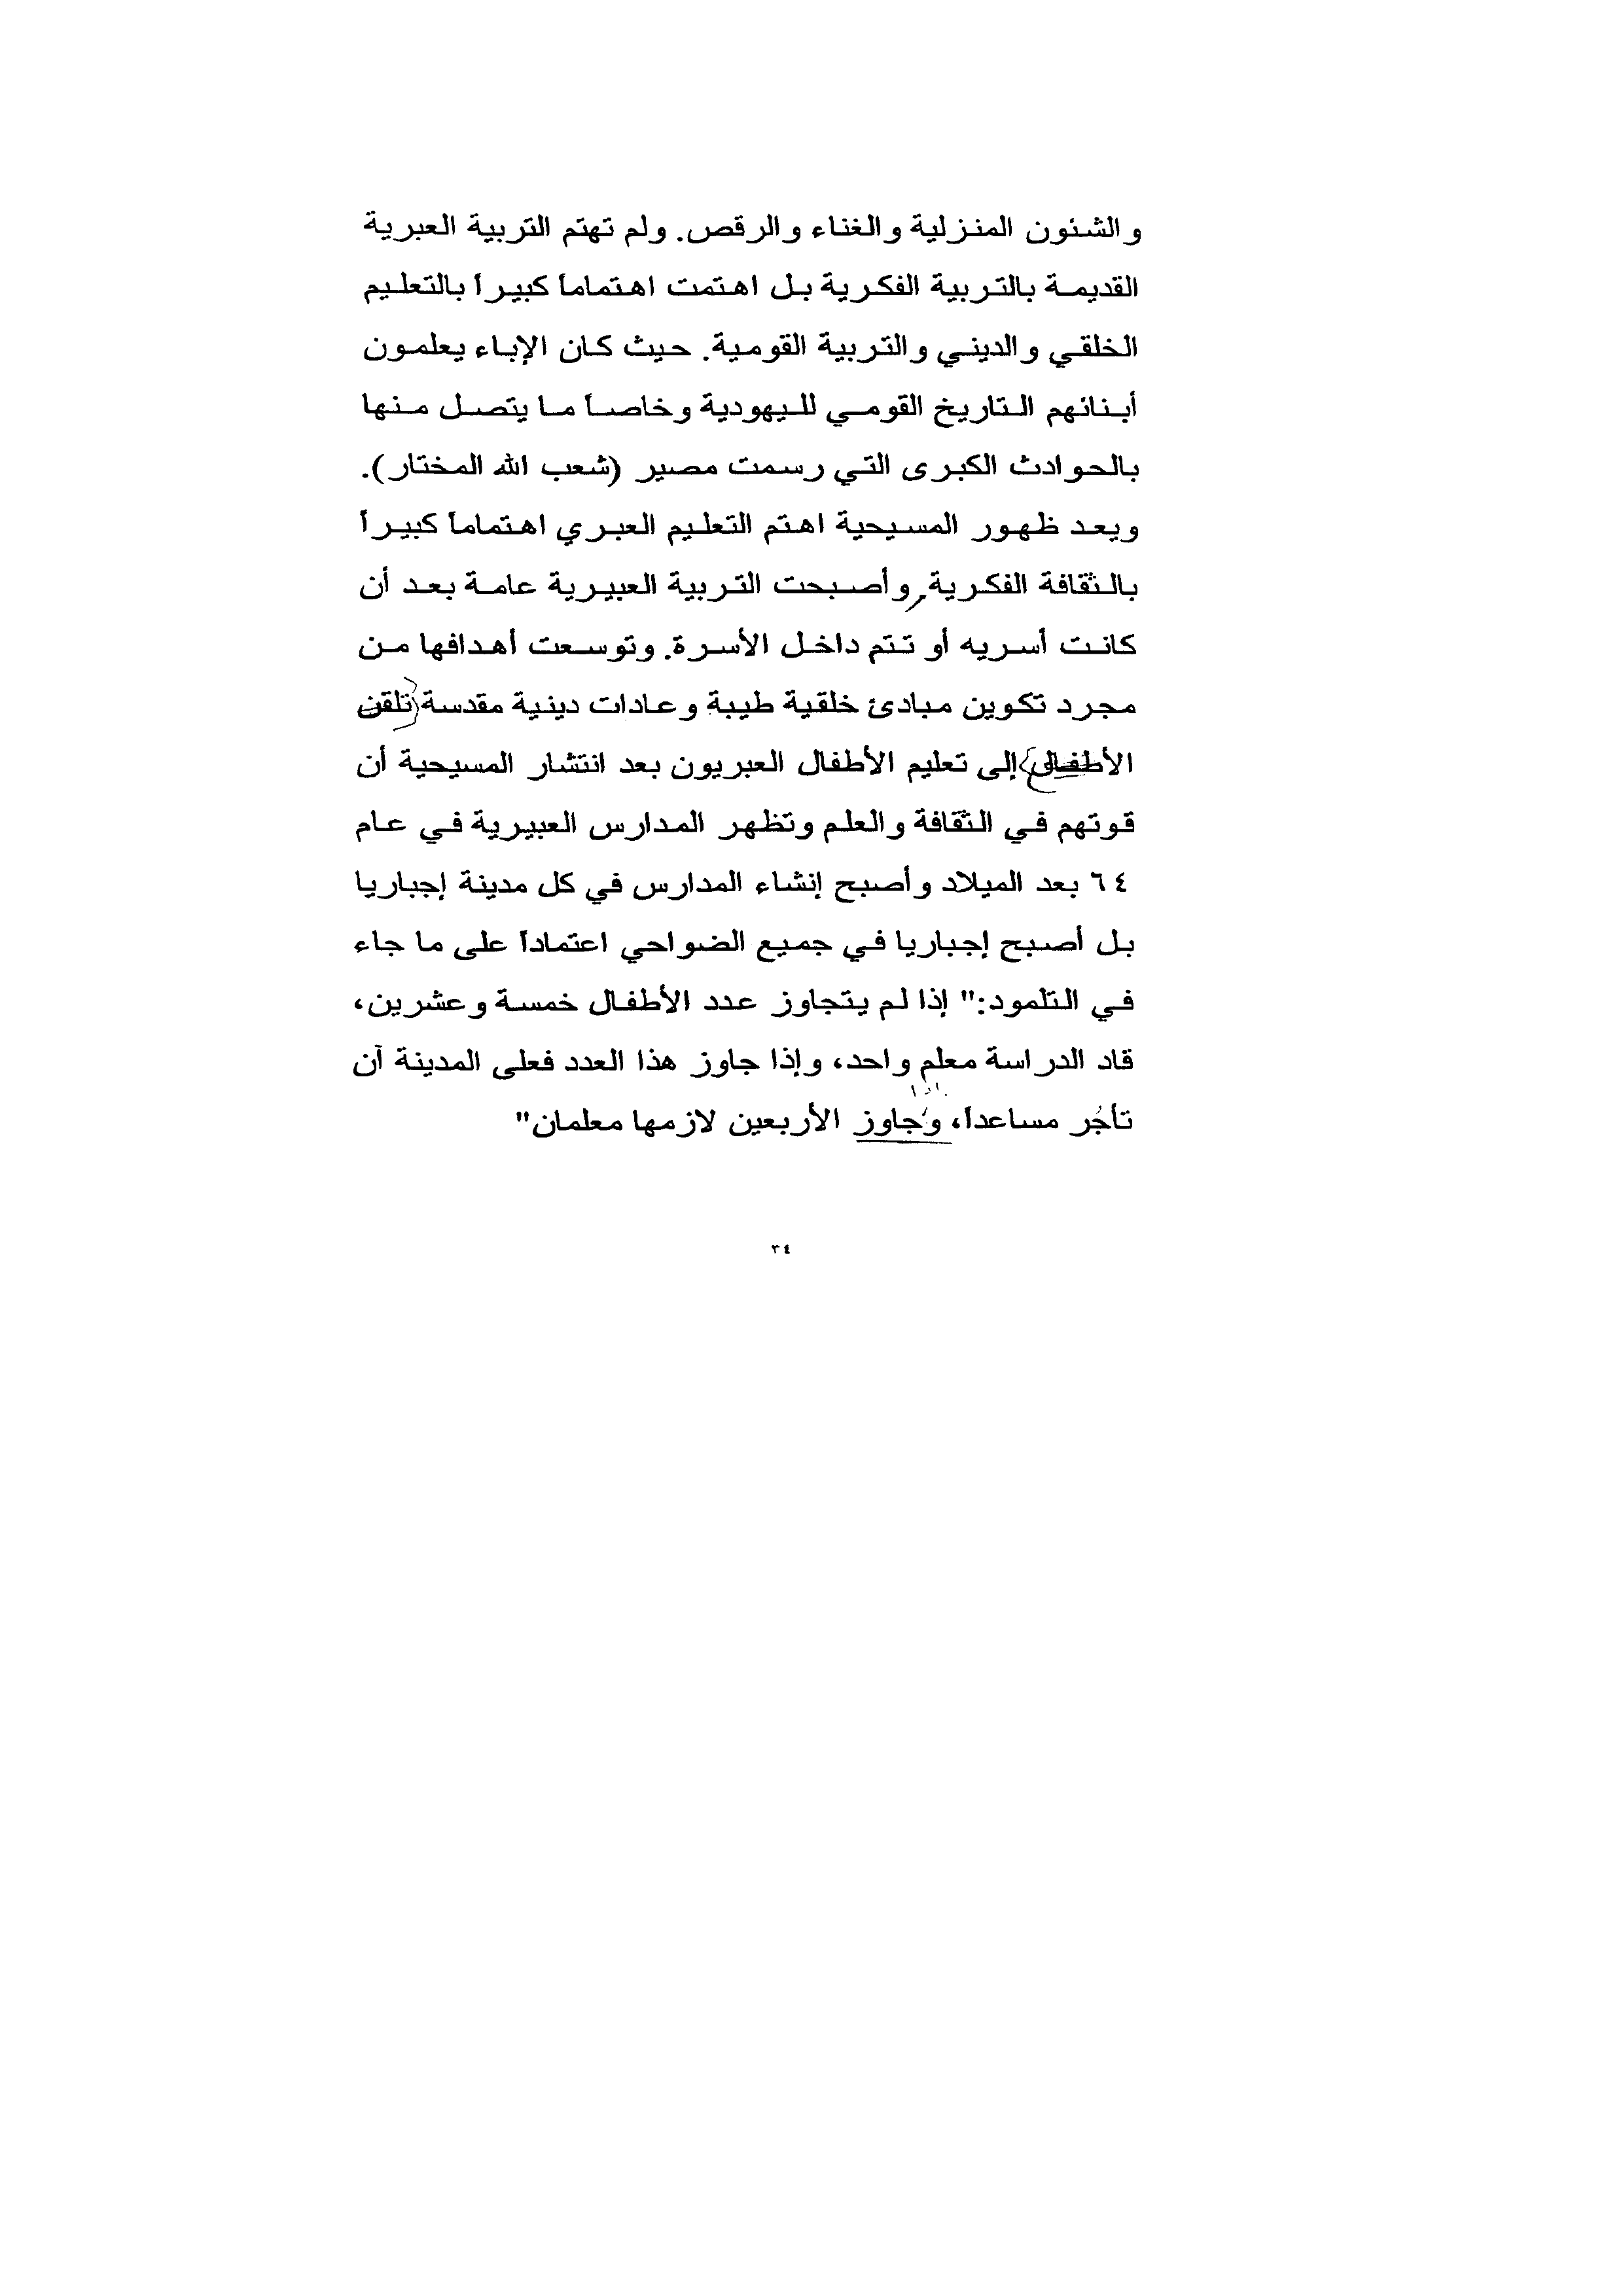 والشئون المنزلية والغناء والرقص. ولم تهتم التربية العبرية
القديمة بالتربية الفكرية بل اهتمت اهتماماً كبيراً بالتعليم
الخلقي والديني والتربية القومية. حيث كان الإباء يعلمون
أبنائهم التاريخ القومي لليهودية وخاصاً ما يتصل منها
بالحوادث الكبرى التي رسمت مصير (شعب الله المختار).
وبعد ظهور المسيحية اهتم التعليم العبري اهتماماً كبيراً
بالثقافة الفكرية, وأصبحت التربية العبيرية عامة بعد أن
كانت أسريه أو تتم داخل الأسرة. وتوسعت أهدافها من
مجرد تكوين مبادئ خلقية طيبة وعادات دينية مقدسة (تلقن
الأطفال) إلى تعليم الأطفال العبريون بعد انتشار المسيحية أن
قوتهم في الثقافة والعلم وتظهر المدارس العبيرية في عام
٦٤ بعد الميلاد وأصبح إنشاء المدارس في كل مدينة إجباريا
بل أصبح إجباريا في جميع الضواحي اعتماداً على ما جاء
في التلمود:" إذا لم يتجاوز عدد الأطفال خمسة وعشرين،
قاد الدراسة معلم واحد، وإذا جاوز هذا العدد فعلى المدينة آن
تأجُر مساعداً، وجاوز الأربعين لازمها معلمان"
٣٤